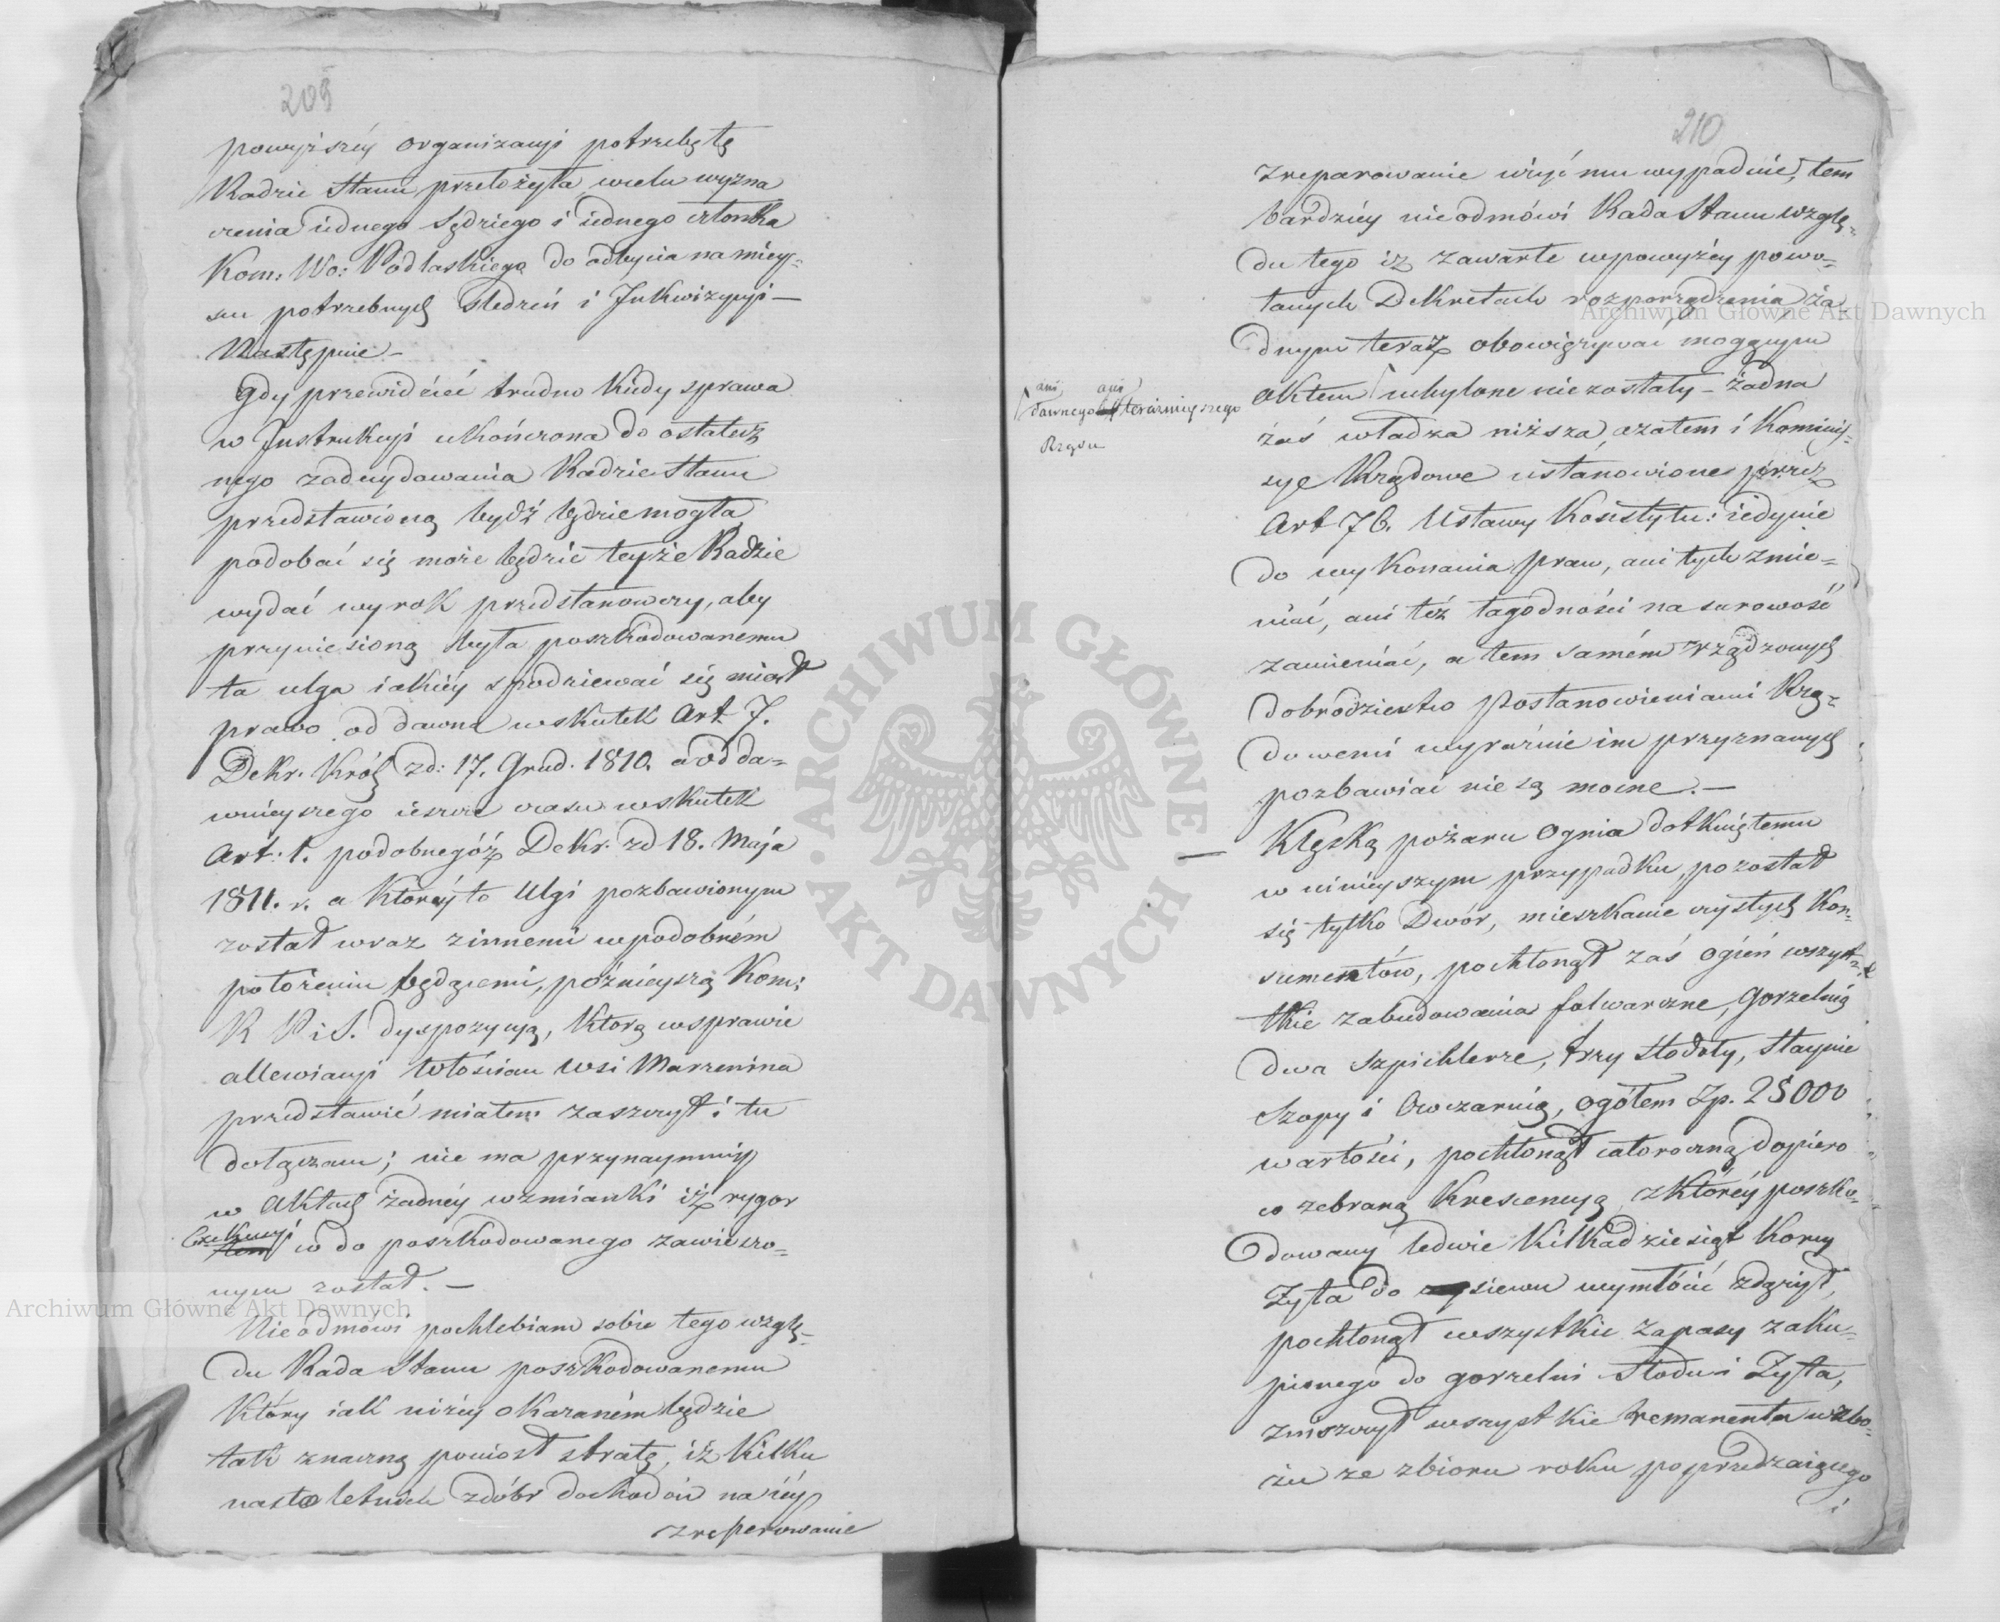 209
powyższéy organizacyi potrzebę tę
Radzie Stanu przełożyła, wcelu wyzna
czenia iednego Sędziego i iednego członka
Kom: Wo: Podlaskiego do odbycia na miey=
scu potrzebnych śledzeń i Inkwizycyi —
Następnie —
Gdy przewidzieć trudno kiedy sprawa
w Instrukcyi ukończona do ostatecz
nego zadecydowania Radzie Stanu
przedstawioną bydź będzie mogła,
podobać się może będzie teyże Radzie
wydać wyrok przedstanowczy, aby
przyniesioną była poszkodowanemu
ta ulga iakiéy spodziewać się miał
prawo od dawna wskutek Art 7.
Dekr. Król: zd: 17. Grud. 1810. a od da=
wnieyszego ieszcze czasu wskutek
Art: 1. podobnegóż Dekr. zd 18. Maja
1811. r. a któréy to Ulgi pozbawionym
został wraz zinnemi wpodobném
położeniu będącemi, późnieyszą Kom:
R P i S. dyspozycyą, którą wsprawie
allewiacyi włościan wsi Marzenina
przedstawić miałem zaszczyt i tu
dołączam; nie ma przynaymniéy
w Aktach żadnéy wzmianki iż rygor
Exekucyi
w do poszkodowanego zawieszo=
nym został. —
Nieodmówi pochlebiam sobie tego wzglę=
du Rada Stanu poszkodowanemu
który iak niżéy okazaném będzie
tak znaczną poniosł stratę, iż kilku
nasto letnich zdóbr dochodów na iéy
zreperowanie
210
zreparowanie użyć mu wypadnie, tem
bardziéy nieodmówi Rada Stanu wzglę=
du tego iż zawarte wpowyżéy powo=
łanych Dekretach rozporządzenia ża
dnym teraz obowięzywać mogącym
Aktem uchylone nie zostały — żadna
ani ani
dawnego teraźnieyszego
Rządu
zaś władza niższa, a zatem i Kommis=
sye Rządowe ustanowione przez
Art 76. Ustawy Konstytu: iedynie
do wykonania praw, ani tych zmie=
niać, ani też łagodności na surowość
zamieniać, a tem samém rządzonych
dobrodzieystwo Postanowieniami Rzą=
dowemi wyraźnie im przyznanych
pozbawiać nie są mocne. —
Klęską pożaru Ognia dotkniętemu
w ninieyszym przypadku pozostał
się tylko Dwór, mieszkanie czystych Kon=
sumentów, pochłonął zaś ogień wszyst=
tkie zabudowania folwarczne, Gorzelnią
dwa Szpichlerze, trzy Stodoły, Staynie
Szopy i Owczarnią, ogółem Zp. 25000
wartości, pochłonął całoroczną dopiero
co zebraną Krescencyą, zktóréy poszko=
dowany ledwie kilkadziesiąt korcy
Zyta do siewu wymłócić zdążył,
pochłonął wszystkie zapasy zaku=
pionego do gorzelni Słodu i Zyta,
zniszczył wszystkie remanenta w zbo=
żu ze zbioru roku poprzedzaiącego
i
Archiwum Główne Akt Dawnych
Archiwum Główne Akt Dawnych
ARCHIWUM GŁÓWNE · AKT DAWNYCH ·